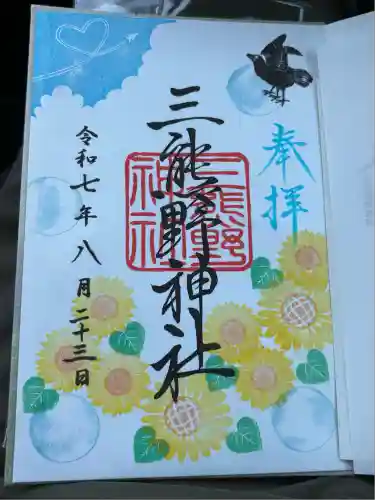 奉拝
三熊野神社
三熊野神社
令和七年八月二十三日